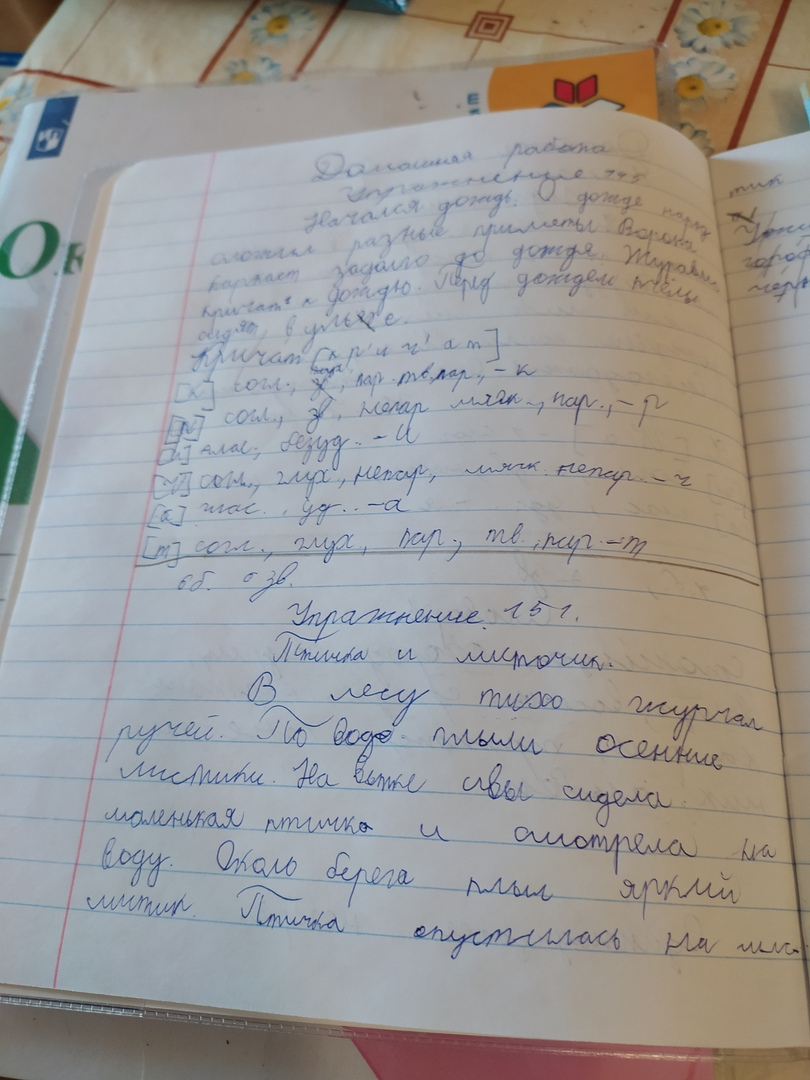 Домашняя работа
Упражнение 145
Начался дождь. О дожде народ
сложил разные приметы. Ворона
каркает задолго до дождя. Журавли
кричат к дождю. Перед дождём пчёлы
сидят в улье.
Кричат [к р' и ч' а т]
[к] согл., глух., пар. тв. пар., – к
[р'] согл., зв., непар мягк., пар., – р
[и] глас., безуд. – и
[ч'] согл., глух., непар, мягк. непар. – ч
[а] глас., уд.. – а
[т] согл., глух., пар., тв., пар. – т
6б. 6 зв.
Упражнение. 151.
Птичка и листочик.
В лесу тихо журчал
ручей. По воде плыли осенние
листики. На ветке ивы сидела
маленькая птичка и смотрела на
воду. Около берега плыл яркий
листик. Птичка опустилась на лис-
тик
горо
О